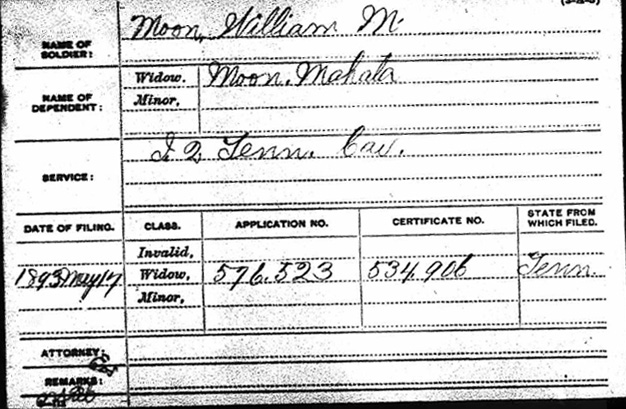 NAME OF SOLDIER: Moon, William M.
NAME OF DEPENDENT: Widow, Moon, Mahala
Minor,
SERVICE: I 2 Tenn. Cav.
DATE OF FILING. CLASS. APPLICATION NO. CERTIFICATE NO. STATE FROM WHICH FILED.
Invalid,
1893 May 17 Widow, 576.523 534.906 Tenn.
Minor,
ATTORNEY:
REMARKS: